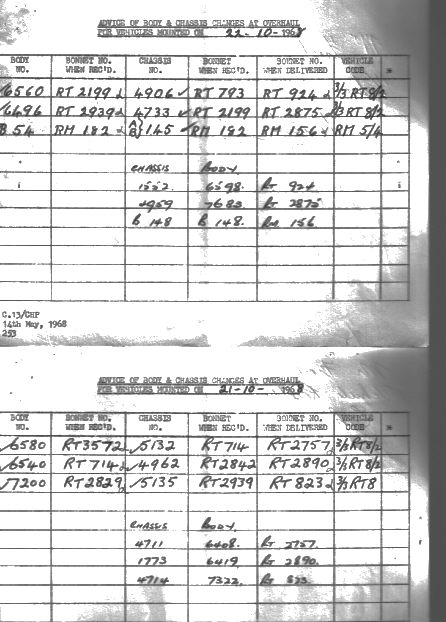 ADVICE OF BODY & CHASSIS CHANGES AT OVERHAUL
FOR VEHICLES MOUNTED ON 22-10-1968
BODY NO. BONNET NO. WHEN REC'D. CHASSIS NO. BONNET WHEN REC'D. BONNET NO. WHEN DELIVERED VEHICLE CODE *
6560 RT 2199 4906 ✓ RT 793 RT 924 3/3 RT8/2
6496 RT 2939 4733 ✓ RT 2199 RT 2875 3/3 RT8/2
B 54 RM 182 145 ✓ RM 182 RM 156 RM 5/4
CHASSIS BODY
1552 6598 RT 924
4959 7683 RT 2875
B 148 B 148. RM 156
C.13/CHP
14th May, 1968
253
ADVICE OF BODY & CHASSIS CHANGES AT OVERHAUL
FOR VEHICLES MOUNTED ON 21-10-1968
BODY NO. BONNET NO. WHEN REC'D. CHASSIS NO. BONNET WHEN REC'D. BONNET NO. WHEN DELIVERED VEHICLE CODE *
✓6580 RT3572 ✓5132 RT714 RT2757 3/3 RT8/2
✓6540 RT714 ✓4962 RT2842 RT2890 3/3 RT8/2
✓7200 RT2829 ✓5135 RT2939 RT823 3/3 RT8
CHASSIS BODY
4711 6408. RT 2757.
1773 6419 RT 2890.
4714 7322 RT 823